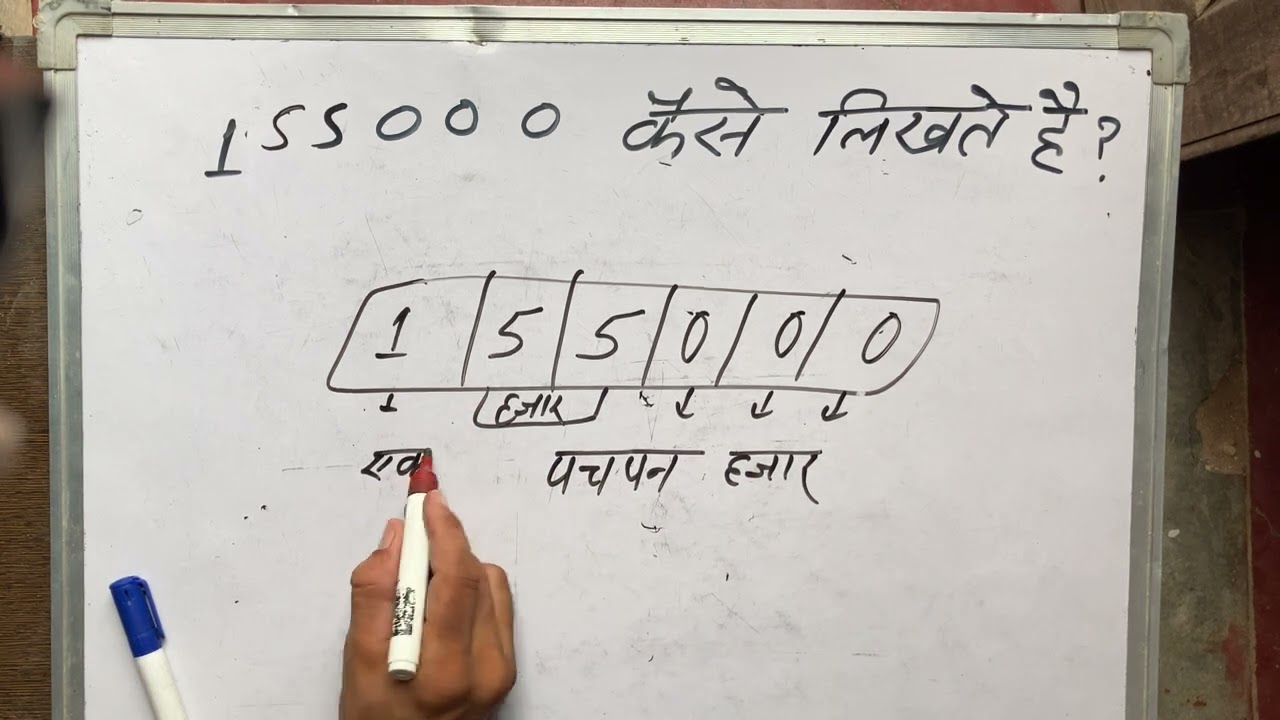 155000 कैसे लिखते है?
1 5 5 0 0 0
हजार
एक पचपन हजार